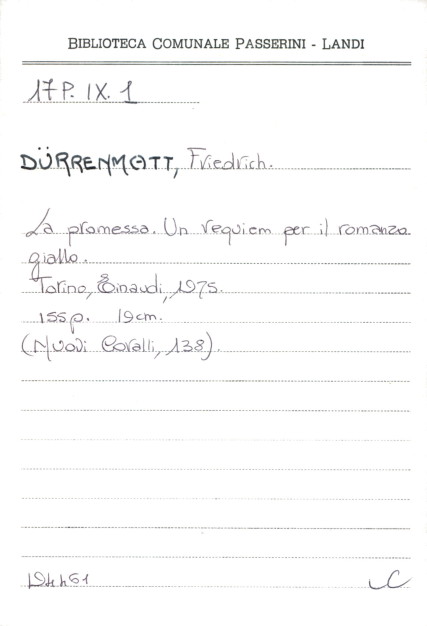 BIBLIOTECA COMUNALE PASSERINI - LANDI
17 P. IX. 1
DÜRRENMATT, Friedrich.
La promessa. Un requiem per il romanzo
giallo.
Torino, Einaudi, 1975.
155 p. 19 cm.
(Nuovi Coralli, 138).